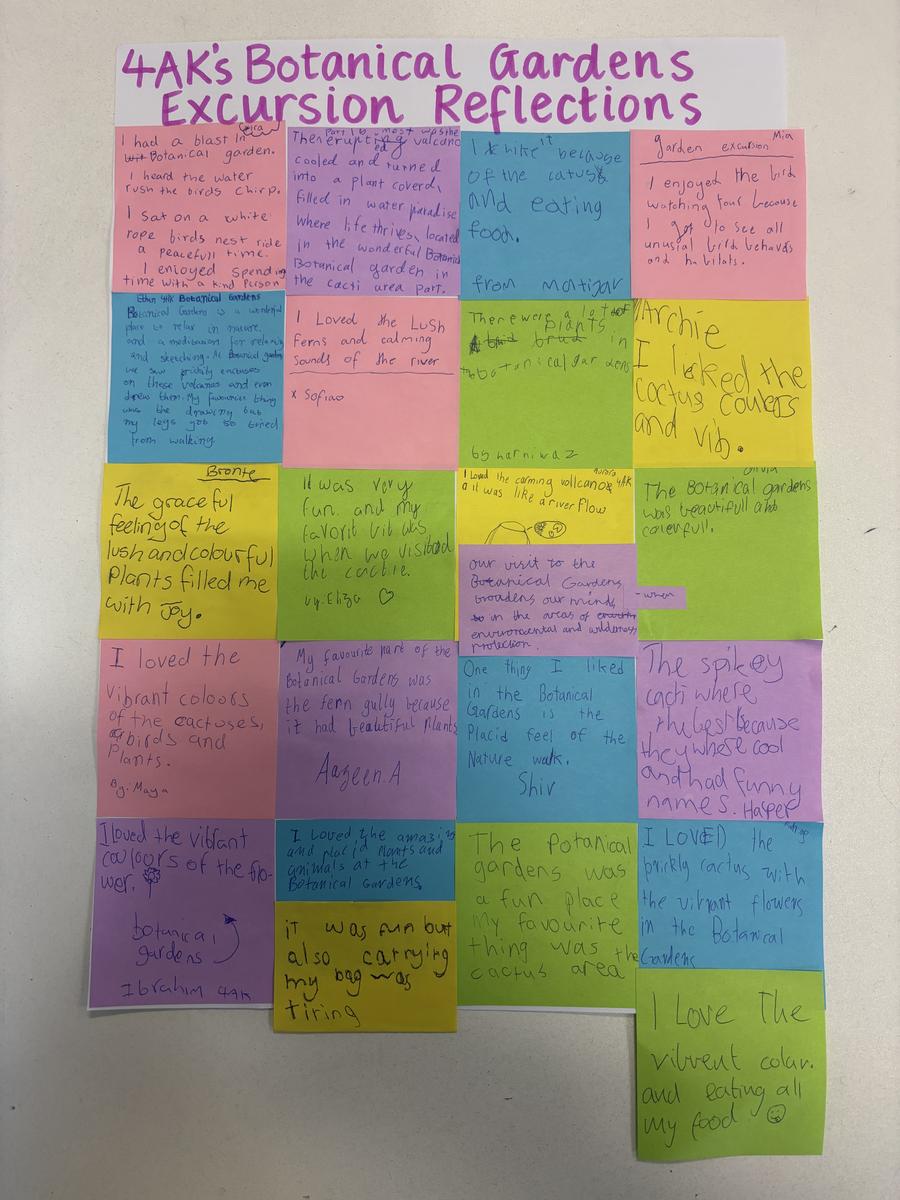 4AK's Botanical Gardens
Excursion Reflections
I had a blast In
Botanical garden.
I heard the water
rush the birds chirp.
I sat on a white
rope birds nest ride
a peacefull time.
I enjoyed spending
time with a kind person
There erupting volcano
cooled and turned
into a plant coverd,
filled in water paradise
where life thrives, located
in the wonderful Botanic
Botanical garden in
the cacti area part.
it because
of the
and eating
food.
from
Mia
garden excursion
I enjoyed the bird
watching tour because
I got to see all
unusial bird behavors
and habitats.
Ethan 4AK Botanical Gardens
Botanical Gardens is a wonderful
place to relax in nature.
and a meditation for relaxing
and sketching. At Botanical gardens
we saw prickly
on these volcanos and even
drew them. My favourite thing
was the drawing but
my legs got so tired
from walking
I Loved the Lush
Ferns and calming
sounds of the river
x Sofia
There were a lot of
plants
in
botanical gardens
by
Archie
I licked the
cactus coulers
and vib.
Bronte
The graceful
feeling of the
lush and colourful
Plants filled me
with Joy.
It was very
fun. and my
favorit bit was
when we visited
the cactie.
by: Eliza ♡
Aurora
I Loved the carming vollcanoe 4AK
it was like a river flow
our visit to the
Botanical Gardens
broadens our minds
in the areas of
enviromental and wilderness
Protection.
Olivia
The Botanical gardens
was beautifull and
colerfull.
I loved the
vibrant colours
of the cactuses,
birds and
Plants.
By: Maya
My favourite part of the
Botanical Gardens was
the fern gully because
it had beautiful Plants
Aazeen.A
One thing I liked
in the Botanical
Gardens is the
Placid feel of the
Nature walk.
Shiv
The spikey
cacti where
the best because
they where cool
and had funny
names. Harper
I loved the vibrant
coulours of the flo-
wer.
botanical
gardens
Ibrahim 4AK
I Loved the amazing
and placid Plants and
animals at the
Botanical Gardens.
it was fun but
also carrying
my bag was
tiring
The Botanical
gardens was
a fun place
My favourite
thing was the
cactus area
I LOVED the
prickly cactus with
the vibrant flowers
in the Botanical
Gardens
I Love The
vibrent colar.
and eating all
my food.